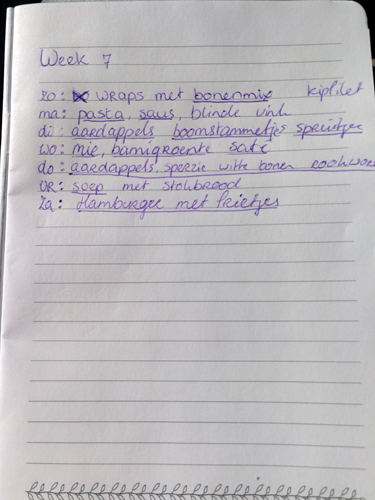 Week 7
zo: wraps met bonenmix kipfilet
ma: pasta, saus, blinde vink
di: aardappels boomstammetjes spruitjes
wo: mie, bamigroente saté
do: aardappels, sperzie witte bonen rookwor
vr: soep met stokbrood
za: Hamburger met frietjes